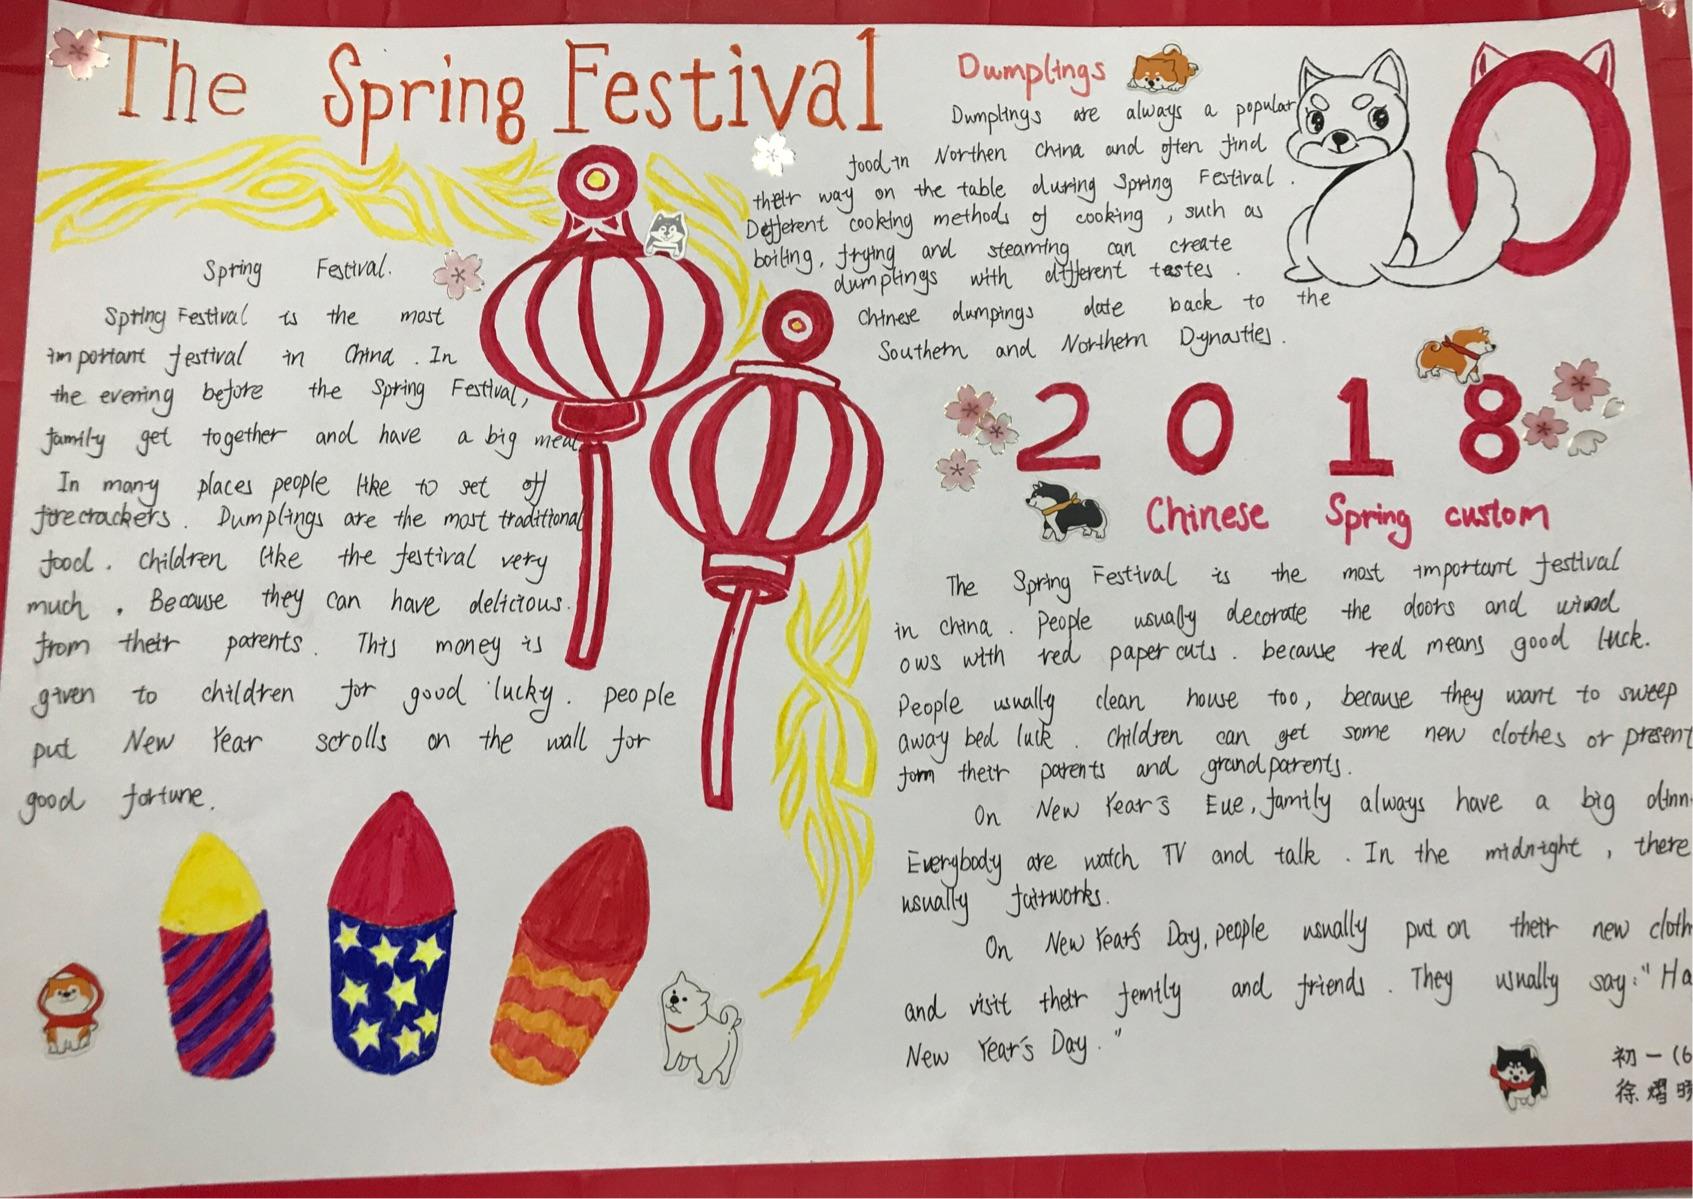 The Spring Festival
Spring Festival.
Spring Festival is the most
important festival in China . In
the evening before the Spring Festival,
family get together and have a big meal.
In many places people like to set off
firecrackers . Dumplings are the most traditional
food . Children like the festival very
much . Because they can have delicious.
from their parents . This money is
given to children for good lucky . people
put New Year scrolls on the wall for
good fortune.
Dumplings
Dumplings are always a popular
food in Northen China and often find
their way on the table during Spring Festival .
Different cooking methods of cooking , such as
boiling, frying and steaming can create
dumplings with different tastes .
Chinese dumpings date back to the
Southern and Northern Dynasties .
2018
Chinese Spring custom
The Spring Festival is the most important festival
in china . People usually decorate the doors and wind
ows with red paper cuts . because red means good luck.
People usually clean house too, because they want to sweep
away bed luck . Children can get some new clothes or present
form their parents and grandparents.
On New Year's Eue, family always have a big dinn
Everybody are watch TV and talk . In the midnight , there
usually fairworks.
On New Year's Day, people usually put on their new cloth
and visit their femily and friends . They usually say: " Ha
New Year's Day . "
初一(6
徐熠